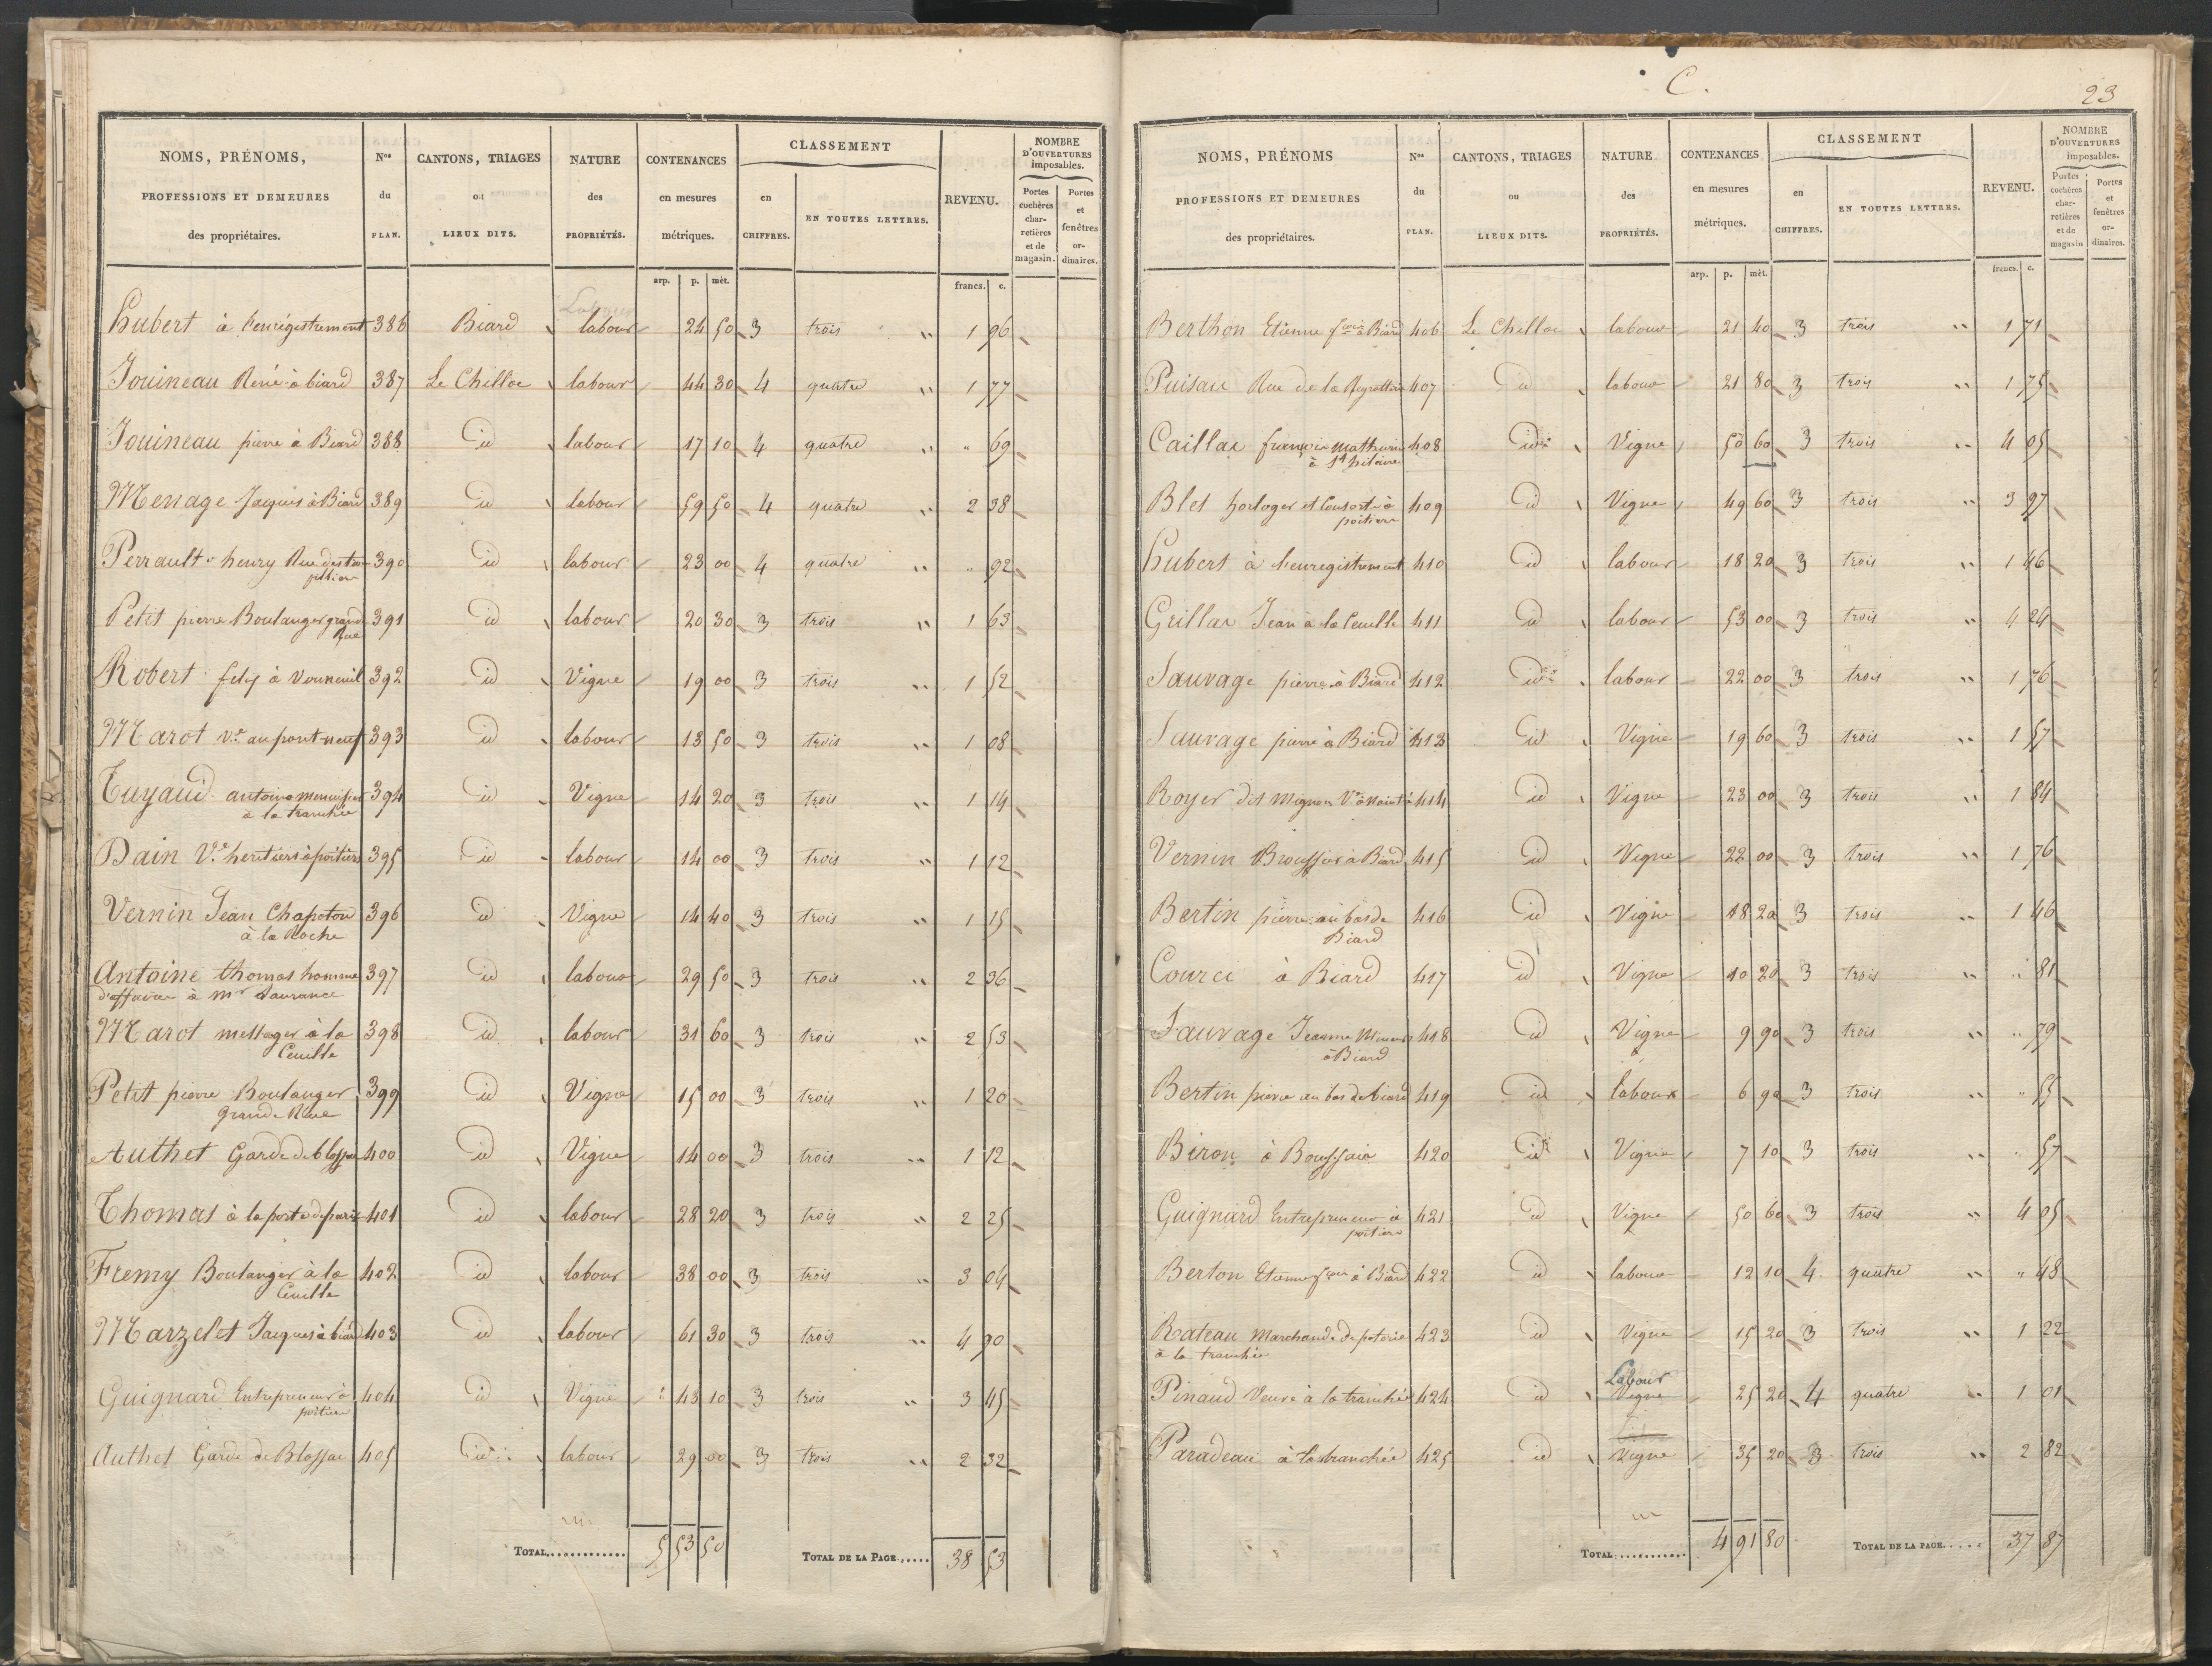 NOMS, PRÉNOMS, PROFESSIONS ET DEMEURES des propriétaires. | Nos du PLAN. | CANTONS, TRIAGES ou LIEUX DITS. | NATURE des PROPRIÉTÉS. | CONTENANCES en mesures métriques. | CLASSEMENT en CHIFFRES. | EN TOUTES LETTRES. | REVENU. | NOMBRE D'OUVERTURES imposables. Portes cochères charretières et de magasin. | Portes et fenêtres ordinaires.
arp. | p. | mèt. | francs. | c.
Hubert à l'enrégistrement 386 Biard labour 24 50 3 trois " 1 96
Jouineau René à biard 387 Le Chilloc labour 44 30 4 quatre " 1 77
Jouineau pierre à Biard 388 id labour 17 10 4 quatre " " 69
Menage Jacques à Biard 389 id labour 59 50 4 quatre " 2 38
Perrault henry Rue des 390 id labour 23 00 4 quatre " " 92
Petit pierre Boulanger grand Rue 391 id labour 20 30 3 trois " 1 63
Robert fely à Vouneuil 392 id Vigne 19 00 3 trois " 1 52
Marot Ve au pont neuf 393 id labour 13 50 3 trois " 1 08
Tuyaud antoine menuisier à la tranchée 394 id Vigne 14 20 3 trois " 1 14
Dain Ve heritiers à poitiers 395 id labour 14 00 3 trois " 1 12
Vernin Jean Chapoton à la Roche 396 id Vigne 14 40 3 trois " 1 15
Antoine thomas homme d'affaires à mr Laurance 397 id labour 29 50 3 trois " 2 36
Marot messager à la Cueille 398 id labour 31 60 3 trois " 2 53
Petit pierre Boulanger grande Rue 399 id Vigne 15 00 3 trois " 1 20
Authet Garde de blossac 400 id Vigne 14 00 3 trois " 1 12
Thomas à la porte de paris 401 id labour 28 20 3 trois " 2 25
Fremy Boulanger à la Cueille 402 id labour 38 00 3 trois " 3 04
Marzelet Jacques à biard 403 id labour 61 30 3 trois " 4 90
Guignard Entrepreneur à poitiers 404 id Vigne 43 10 3 trois " 3 45
Authet Garde de Blossac 405 id labour 29 00 3 trois " 2 32
TOTAL 5 53 50 TOTAL DE LA PAGE 38 53
C.
23
NOMS, PRÉNOMS PROFESSIONS ET DEMEURES des propriétaires. | Nos du PLAN. | CANTONS, TRIAGES ou LIEUX DITS. | NATURE des PROPRIÉTÉS. | CONTENANCES en mesures métriques. | CLASSEMENT en CHIFFRES. | EN TOUTES LETTRES. | REVENU. | NOMBRE D'OUVERTURES imposables. Portes cochères charretières et de magasin | Portes et fenêtres ordinaires.
arp. | p. | mèt. | francs. | c.
Berthon Etienne à Biard 406 Le Chilloc labour 21 40 3 trois " 1 71
Puisau Rue de la 407 id labour 21 80 3 trois " 1 75
Caillas françois mathurin à St hilaire 408 id Vigne 50 60 3 trois " 4 05
Blet horloger et Consorts à poitiers 409 id Vigne 49 60 3 trois " 3 97
Hubert à l'enregistrement 410 id labour 18 20 3 trois " 1 46
Grillas Jean à la Cueille 411 id labour 53 00 3 trois " 4 24
Sauvage pierre à Biard 412 id labour 22 00 3 trois " 1 76
Sauvage pierre à Biard 413 id Vigne 19 60 3 trois " 1 57
Royer dit mignon Ve 414 id Vigne 23 00 3 trois " 1 84
Vernin à Biard 415 id Vigne 22 00 3 trois " 1 76
Bertin pierre au bas de Biard 416 id Vigne 18 20 3 trois " 1 46
Ource à Biard 417 id Vigne 10 20 3 trois " " 81
Sauvage Jeanne Mineure à Biard 418 id Vigne 9 90 3 trois " " 79
Bertin pierre au bas de biard 419 id labour 6 90 3 trois " " 55
Biron à 420 id Vigne 7 10 3 trois " " 57
Guignard Entrepreneur à poitiers 421 id Vigne 50 60 3 trois " 4 05
Berton Etienne à Biard 422 id labour 12 10 4 quatre " " 48
Rateau marchand de poterie à la tranchée 423 id Vigne 15 20 3 trois " 1 22
Pinaud Veuve à la tranchée 424 id Labour Vigne 25 20 4 quatre " 1 01
Paradeau à la tranchée 425 id Vigne 35 20 3 trois " 2 82
TOTAL 4 91 80 TOTAL DE LA PAGE 37 87